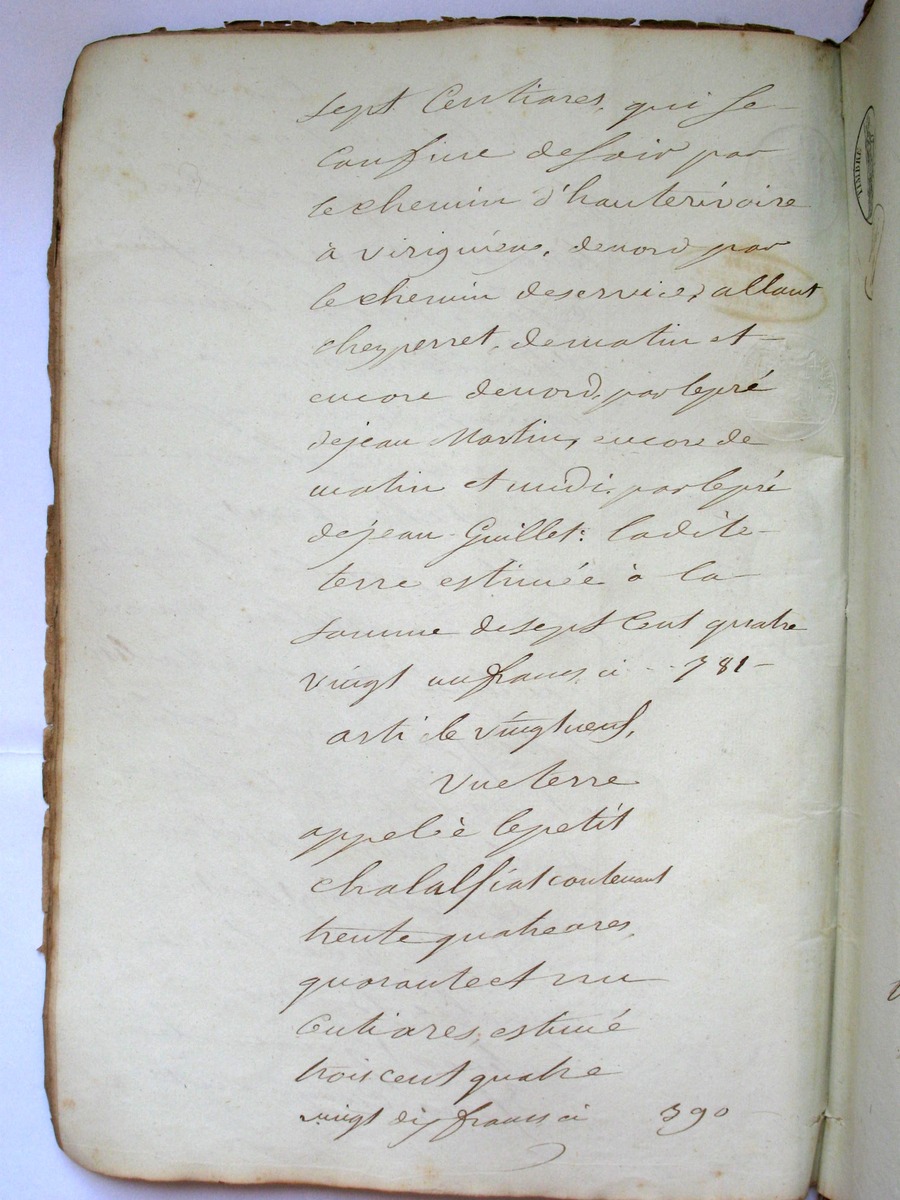 sept Centiares, qui se
confine desoir par
le chemin d'hauterivoire
à virigneux, denord par
le chemin deservice, allant
chezperret, dematin et
encore denord, par lepré
dejean Martin, encore de
matin et midi, par lepré
dejean Guillet: ladite
terre estimée à la
somme desept Cent quatre
vingt unfrancs ci -- 781 -
article vingtneuf,
Uneterre
appelée lepetit
chalalfiat contenant
trente quatreares,
quaranteet un
Centiares, estimé
troiscent quatre
vingt dixfrancs ci 390
TIMBRE